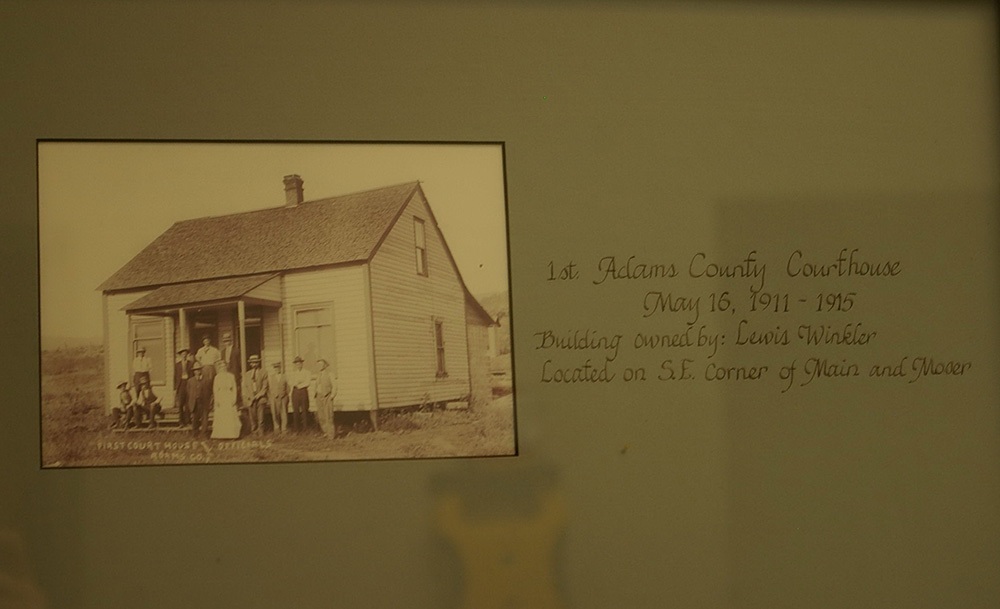 1st. Adams County Courthouse
May 16, 1911 - 1915
Building owned by: Lewis Winkler
Located on S.E. Corner of Main and Moser
FIRST COURT HOUSE & OFFICIALS
ADAMS CO.